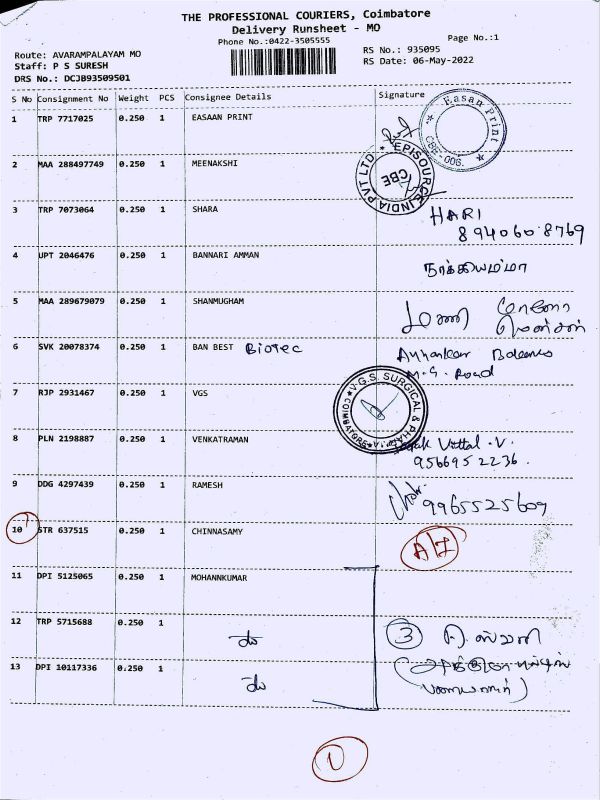 THE PROFESSIONAL COURIERS, Coimbatore
Delivery Runsheet - MO
Phone No.:0422-3505555
Page No.:1
Route: AVARAMPALAYAM MO
RS No.: 935095
Staff: P S SURESH
RS Date: 06-May-2022
DRS No.: DCJ093509501
S No Consignment No Weight PCS Consignee Details Signature
1 TRP 7717025 0.250 1 EASAAN PRINT
Easan Print
CBE-006.
2 MAA 288497749 0.250 1 MEENAKSHI
EPISOURCE INDIA PVT LTD
CBE
3 TRP 7073064 0.250 1 SHARA
HARI
8940608769
4 UPT 2046476 0.250 1 BANNARI AMMAN
5 MAA 289679079 0.250 1 SHANMUGHAM
மணி
6 SVK 20078374 0.250 1 BAN BEST Biotec
M.G. Road
7 RJP 2931467 0.250 1 VGS
V.G.S. SURGICAL & PHARMA
COIMBATORE
8 PLN 2198887 0.250 1 VENKATRAMAN
Vittal.V.
9566952236.
9 DDG 4297439 0.250 1 RAMESH
9965525609
10 STR 637515 0.250 1 CHINNASAMY
A/I
11 DPI 5125065 0.250 1 MOHANNKUMAR
12 TRP 5715688 0.250 1
3
13 DPI 10117336 0.250 1